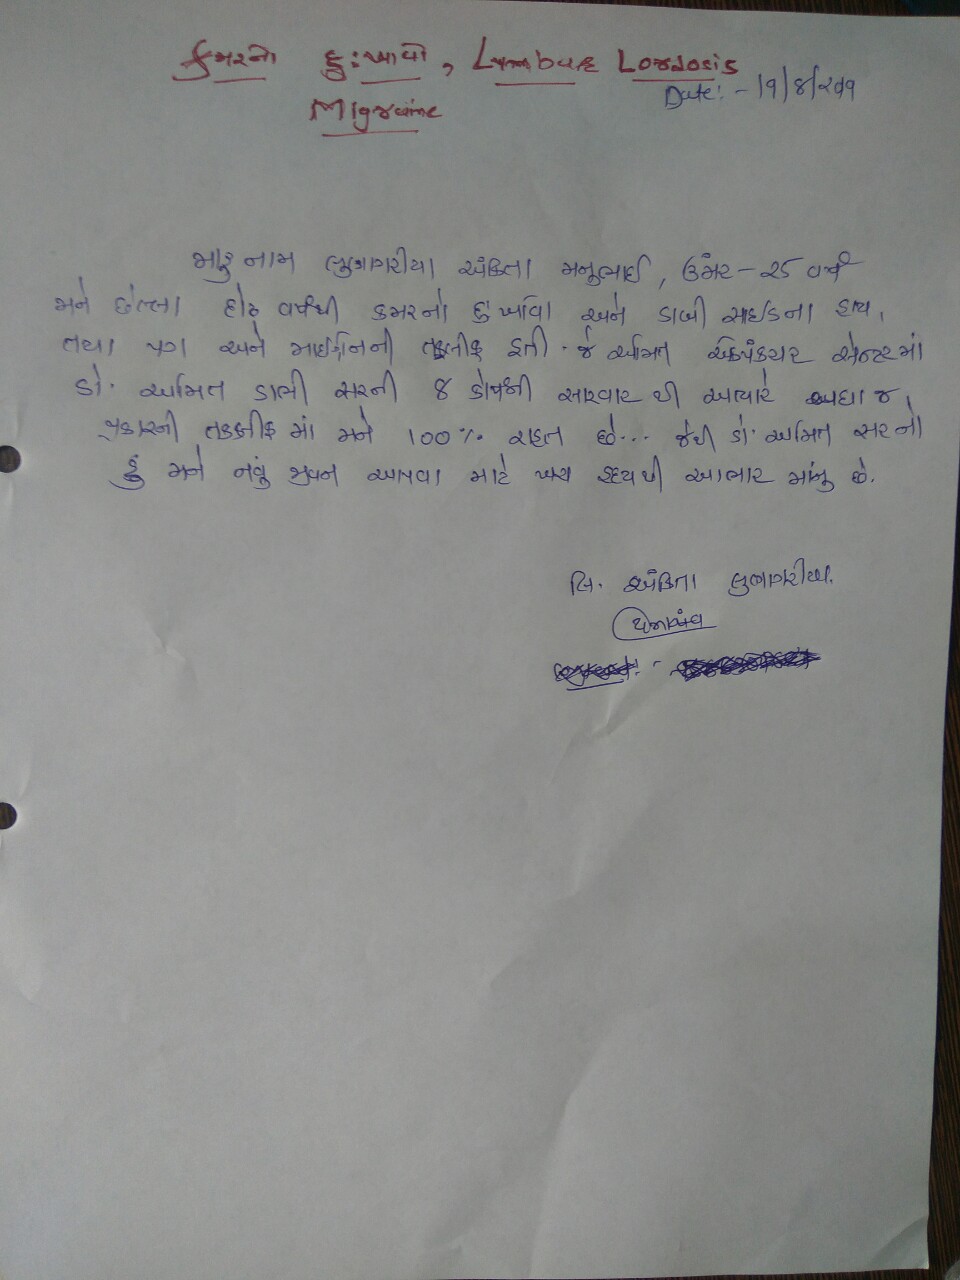 કમરનો દુ:ખાવો, Lumbar Lordosis
Date:-
Migraine
મારૂ નામ અંકિતા મનુભાઈ, ઉંમર-૨૫ વર્ષ
મને છેલ્લા દોઢ વર્ષથી કમરનો દુ:ખાવો અને ડાબી સાઈડના હાથ,
તથા પગ અને માઈગ્રેનની તકલીફ હતી. જે અમિત એક્યુપંક્ચર સેન્ટરમાં
ડો. અમિત ડાભી સરની ૪ કોર્ષની સારવાર થી અત્યારે બધા જ
પ્રકારની તકલીફ માં મને 100% રાહત છે... જેથી ડો. અમિત સરનો
હું મને નવું જીવન આપવા માટે ખરા હ્રદયથી આભાર માનુ છે.
લિ. અંકિતા